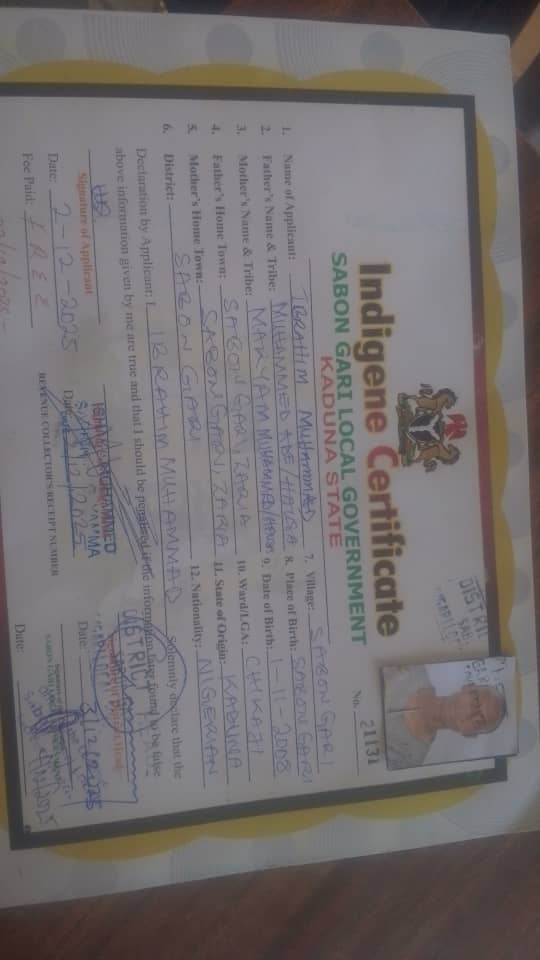 Indigene Certificate
SABON GARI LOCAL GOVERNMENT
KADUNA STATE
No. 21131
1. Name of Applicant: IBRAHIM MUHAMMED
2. Father's Name & Tribe: MUHAMMED
3. Mother's Name & Tribe: MARYAM MUHAMMED
4. Father's Home Town: SABON GARI, ZARIA
5. Mother's Home Town: SABON GARI, ZARIA
6. District: SABON GARI
7. Village: SABON GARI
8. Place of Birth: SABON GARI
9. Date of Birth: 1-11-2008
10. Ward/LGA: CHIKAJI
11. State of Origin: KADUNA
12. Nationality: NIGERIAN
Declaration by Applicant: I, IBRAHIM MUHAMMAD Solemnly declare that the
above information given by me are true and that I should be penalized if the information later found to be false
Signature of Applicant
Date: 2-12-2025
Fee Paid: FREE
REVENUE COLLECTOR'S RECEIPT NUMBER
DISTRICT
Date:
Date: